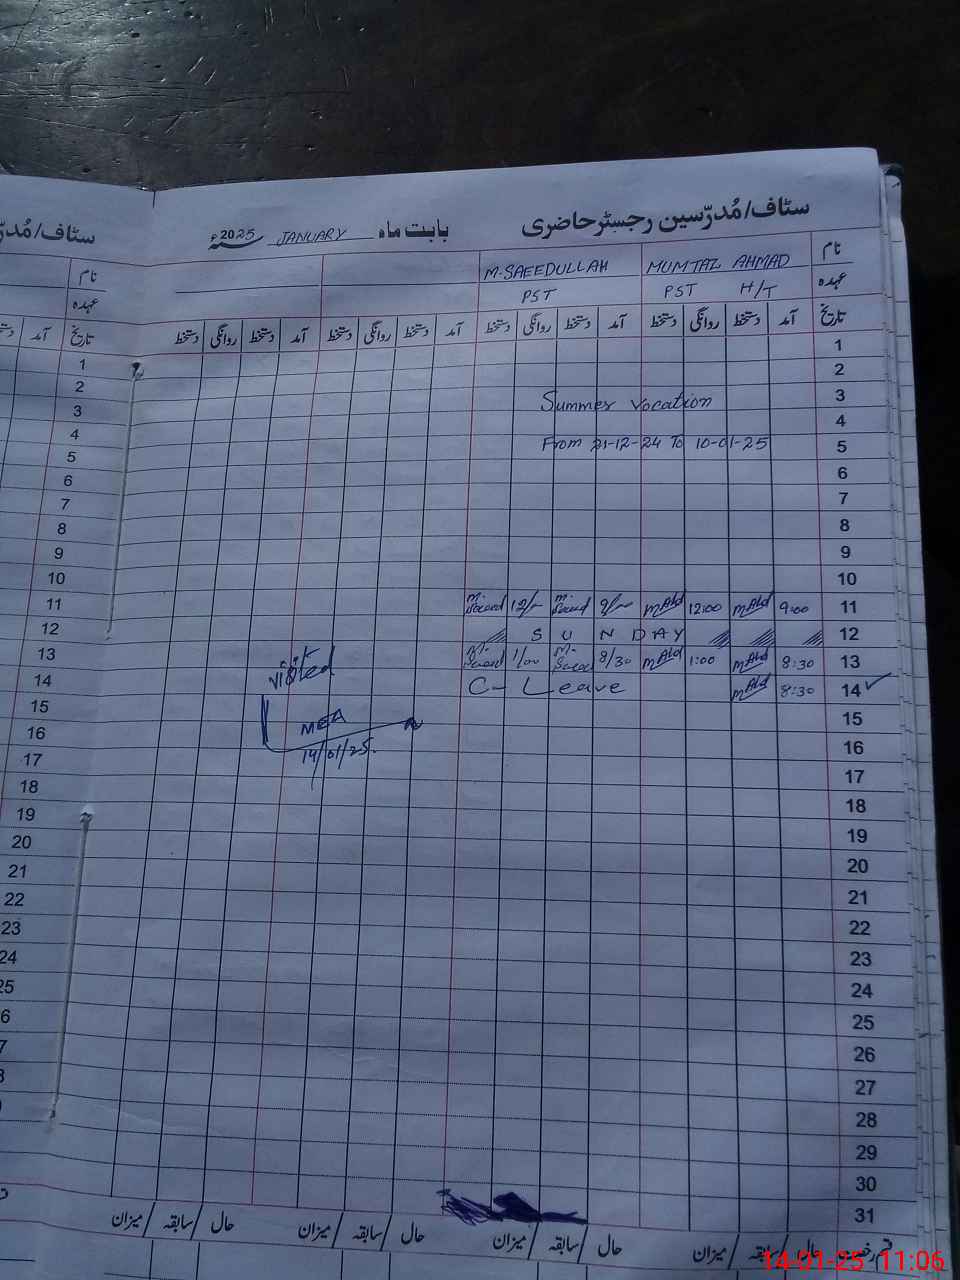 سٹاف/مُدرّسین رجسٹر حاضری
بابت ماہ JANUARY 2025ء
نام MUMTAZ AHMAD M.SAEEDULLAH
عہدہ PST H/T PST
تاریخ آمد دستخط روانگی دستخط آمد دستخط روانگی دستخط آمد دستخط روانگی دستخط آمد دستخط روانگی دستخط
1
2
3 Summer Vocation
4
5 From 21-12-24 To 10-01-25
6
7
8
9
10
11 9:00 12:00 12/-
12 SUNDAY
13 8:30 1:00 8/30 1/00
14 8:30 C- Leave
15
16
17
18
19
20
21
22
23
24
25
26
27
28
29
30
31
visited
MEA
14/01/25.
حال سابقہ میزان حال سابقہ میزان حال سابقہ میزان حال سابقہ میزان
سٹاف/مُدر
نام
عہدہ
تاریخ آمد
1
2
3
4
5
6
7
8
9
10
11
12
13
14
15
16
17
18
19
20
21
22
23
24
14-01-25 11:06